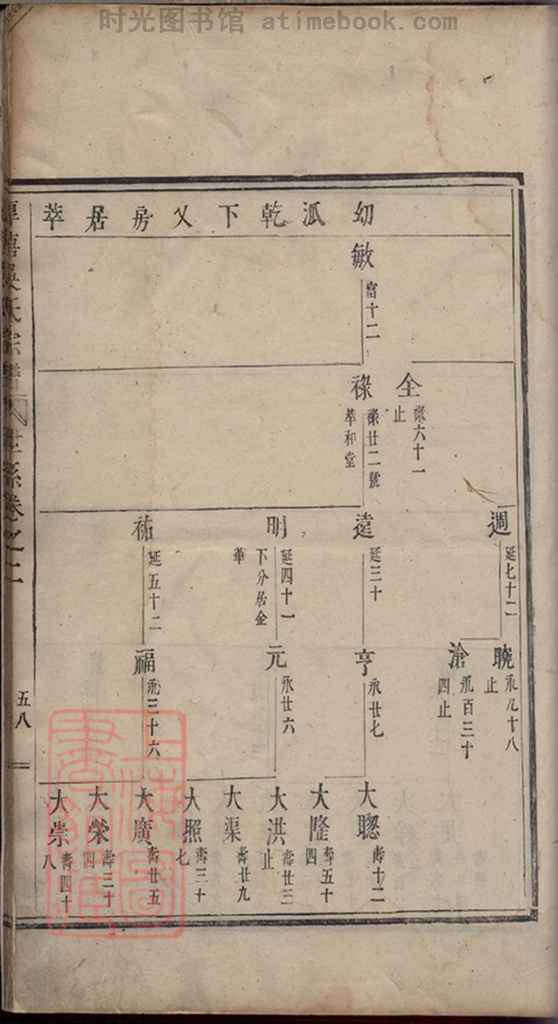 时光图书馆 atimebook.com
幼 泒 乾 下 乂 房 居 萃
敏
富十二
全
榮六十一
止
祿
榮廿二號
萃和堂
週
延七十二
逵
延三十
明
延四十一
下分居金
華
祐
延五十二
晚
永九十八
止
滄
永百三十
四止
亨
永廿七
元
永廿六
福
永三十六
大聰
壽十二
大隆
壽五十
四
大洪
壽廿三
止
大渠
壽廿九
大照
壽三十
七
大廣
壽廿五
大榮
壽三十
四
大崇
壽四十
八
吳氏宗譜
世系卷之二
五八